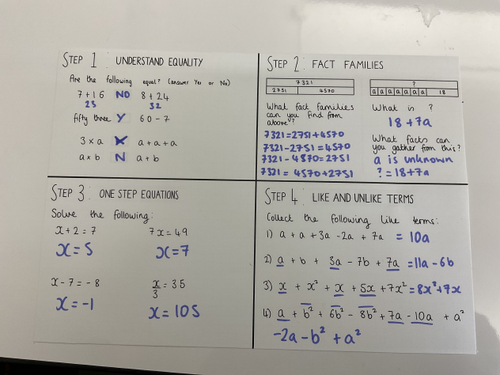 STEP 1 UNDERSTAND EQUALITY
Are the following equal? (answer Yes or No)
7+16 NO 8+24
23 32
fifty three Y 60-7
3 × a Y a + a + a
a × b N a + b
STEP 2 FACT FAMILIES
7321
2751 4570
?
a a a a a a a 18
What fact families
can you find from
above?
7321=2751+4570
7321-2751=4570
7321-4570=2751
7321=4570+2751
What is ?
18+7a
What facts can
you gather from this?
a is unknown
?=18+7a
STEP 3 ONE STEP EQUATIONS
Solve the following:
x+2=7 7x=49
x=5 x=7
x-7=-8 x/3=35
x=-1 x=105
STEP 4 LIKE AND UNLIKE TERMS
Collect the following like terms:
1) a + a + 3a - 2a + 7a = 10a
2) a + b + 3a - 7b + 7a =11a-6b
3) x + x² + x + 5x + 7x² =8x²+7x
4) a + b² + 6b² - 8b² + 7a - 10a + a²
-2a-b²+a²